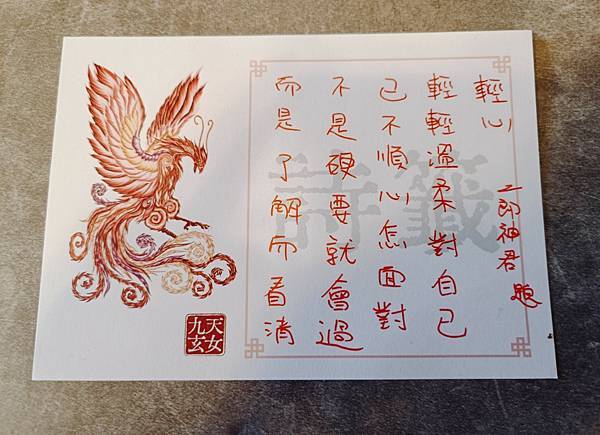 輕心
輕輕溫柔對自己
己不順心怎面對
不是硬要就會過
而是了解而看清
二郎神君 題
詩籤
九天玄女